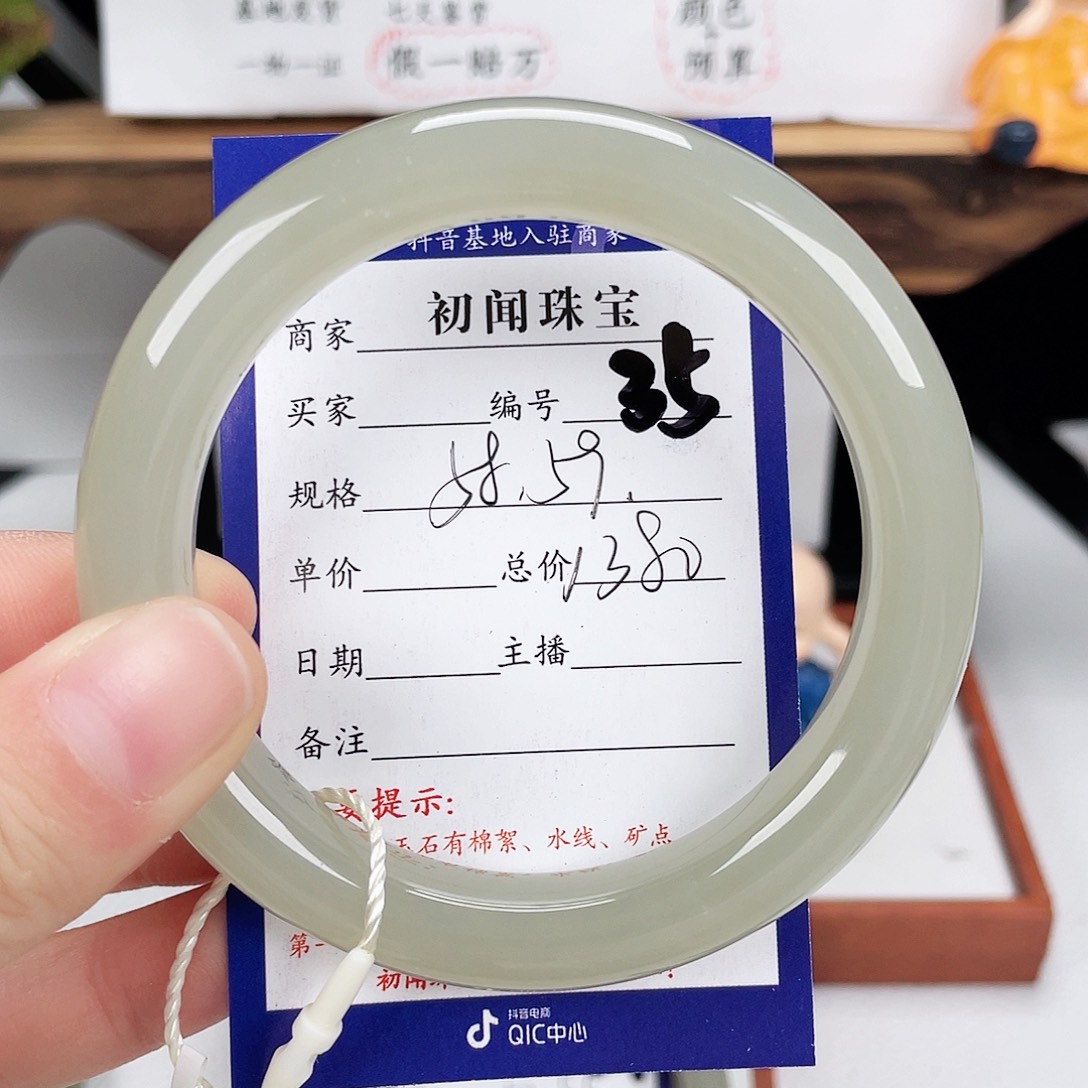 基地发货 七天鉴赏 颜色
一物一证 假一赔万 预算
抖音基地入驻商家
商家 初闻珠宝
买家 编号 35
规格 58.59.
单价 总价 1380
日期 主播
备注
要提示:
玉石有棉絮、水线、矿点
第一
初闻珠
抖音电商
QIC中心